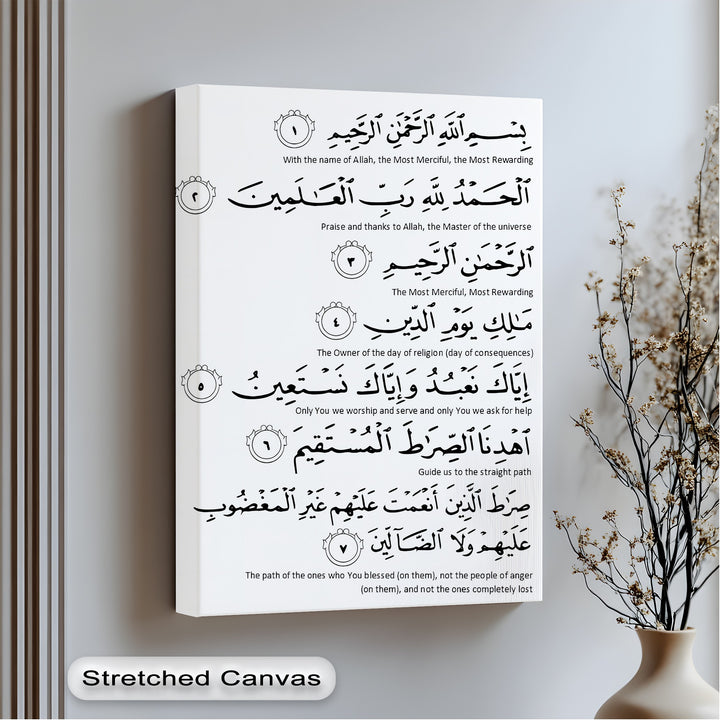 بِسْمِ ٱللَّهِ ٱلرَّحْمَٰنِ ٱلرَّحِيمِ ١
With the name of Allah, the Most Merciful, the Most Rewarding
ٱلْحَمْدُ لِلَّهِ رَبِّ ٱلْعَٰلَمِينَ ٢
Praise and thanks to Allah, the Master of the universe
ٱلرَّحْمَٰنِ ٱلرَّحِيمِ ٣
The Most Merciful, Most Rewarding
مَٰلِكِ يَوْمِ ٱلدِّينِ ٤
The Owner of the day of religion (day of consequences)
إِيَّاكَ نَعْبُدُ وَإِيَّاكَ نَسْتَعِينُ ٥
Only You we worship and serve and only You we ask for help
ٱهْدِنَا ٱلصِّرَٰطَ ٱلْمُسْتَقِيمَ ٦
Guide us to the straight path
صِرَٰطَ ٱلَّذِينَ أَنْعَمْتَ عَلَيْهِمْ غَيْرِ ٱلْمَغْضُوبِ
عَلَيْهِمْ وَلَا ٱلضَّآلِّينَ ٧
The path of the ones who You blessed (on them), not the people of anger
(on them), and not the ones completely lost
Stretched Canvas